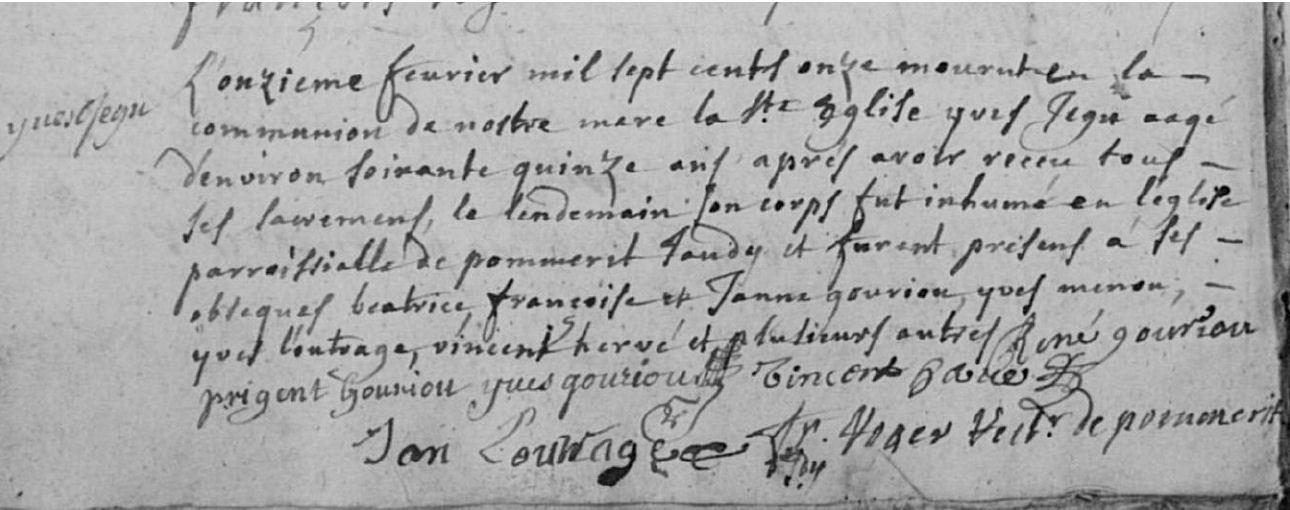 yves Jegu
L'onzieme fevrier mil sept cents onze mourut en la -
communion de nostre mere la Ste Eglise yves Jegu aagé
d'environ soixante quinze ans aprés avoir receu tous -
ses sacremens, le lendemain son corps fut inhumé en l'eglise
parroissialle de pommerit Jaudy et furent présens à ses -
obseques beatrice, françoise et Janne gouriou, yves menou, -
yves l'outrage, vincent hervé et plusieurs autres René gouriou
prigent Gouriou yves gouriou Vincent hervé
Jan Louvrag fr. Roger Rect.r de pommerit